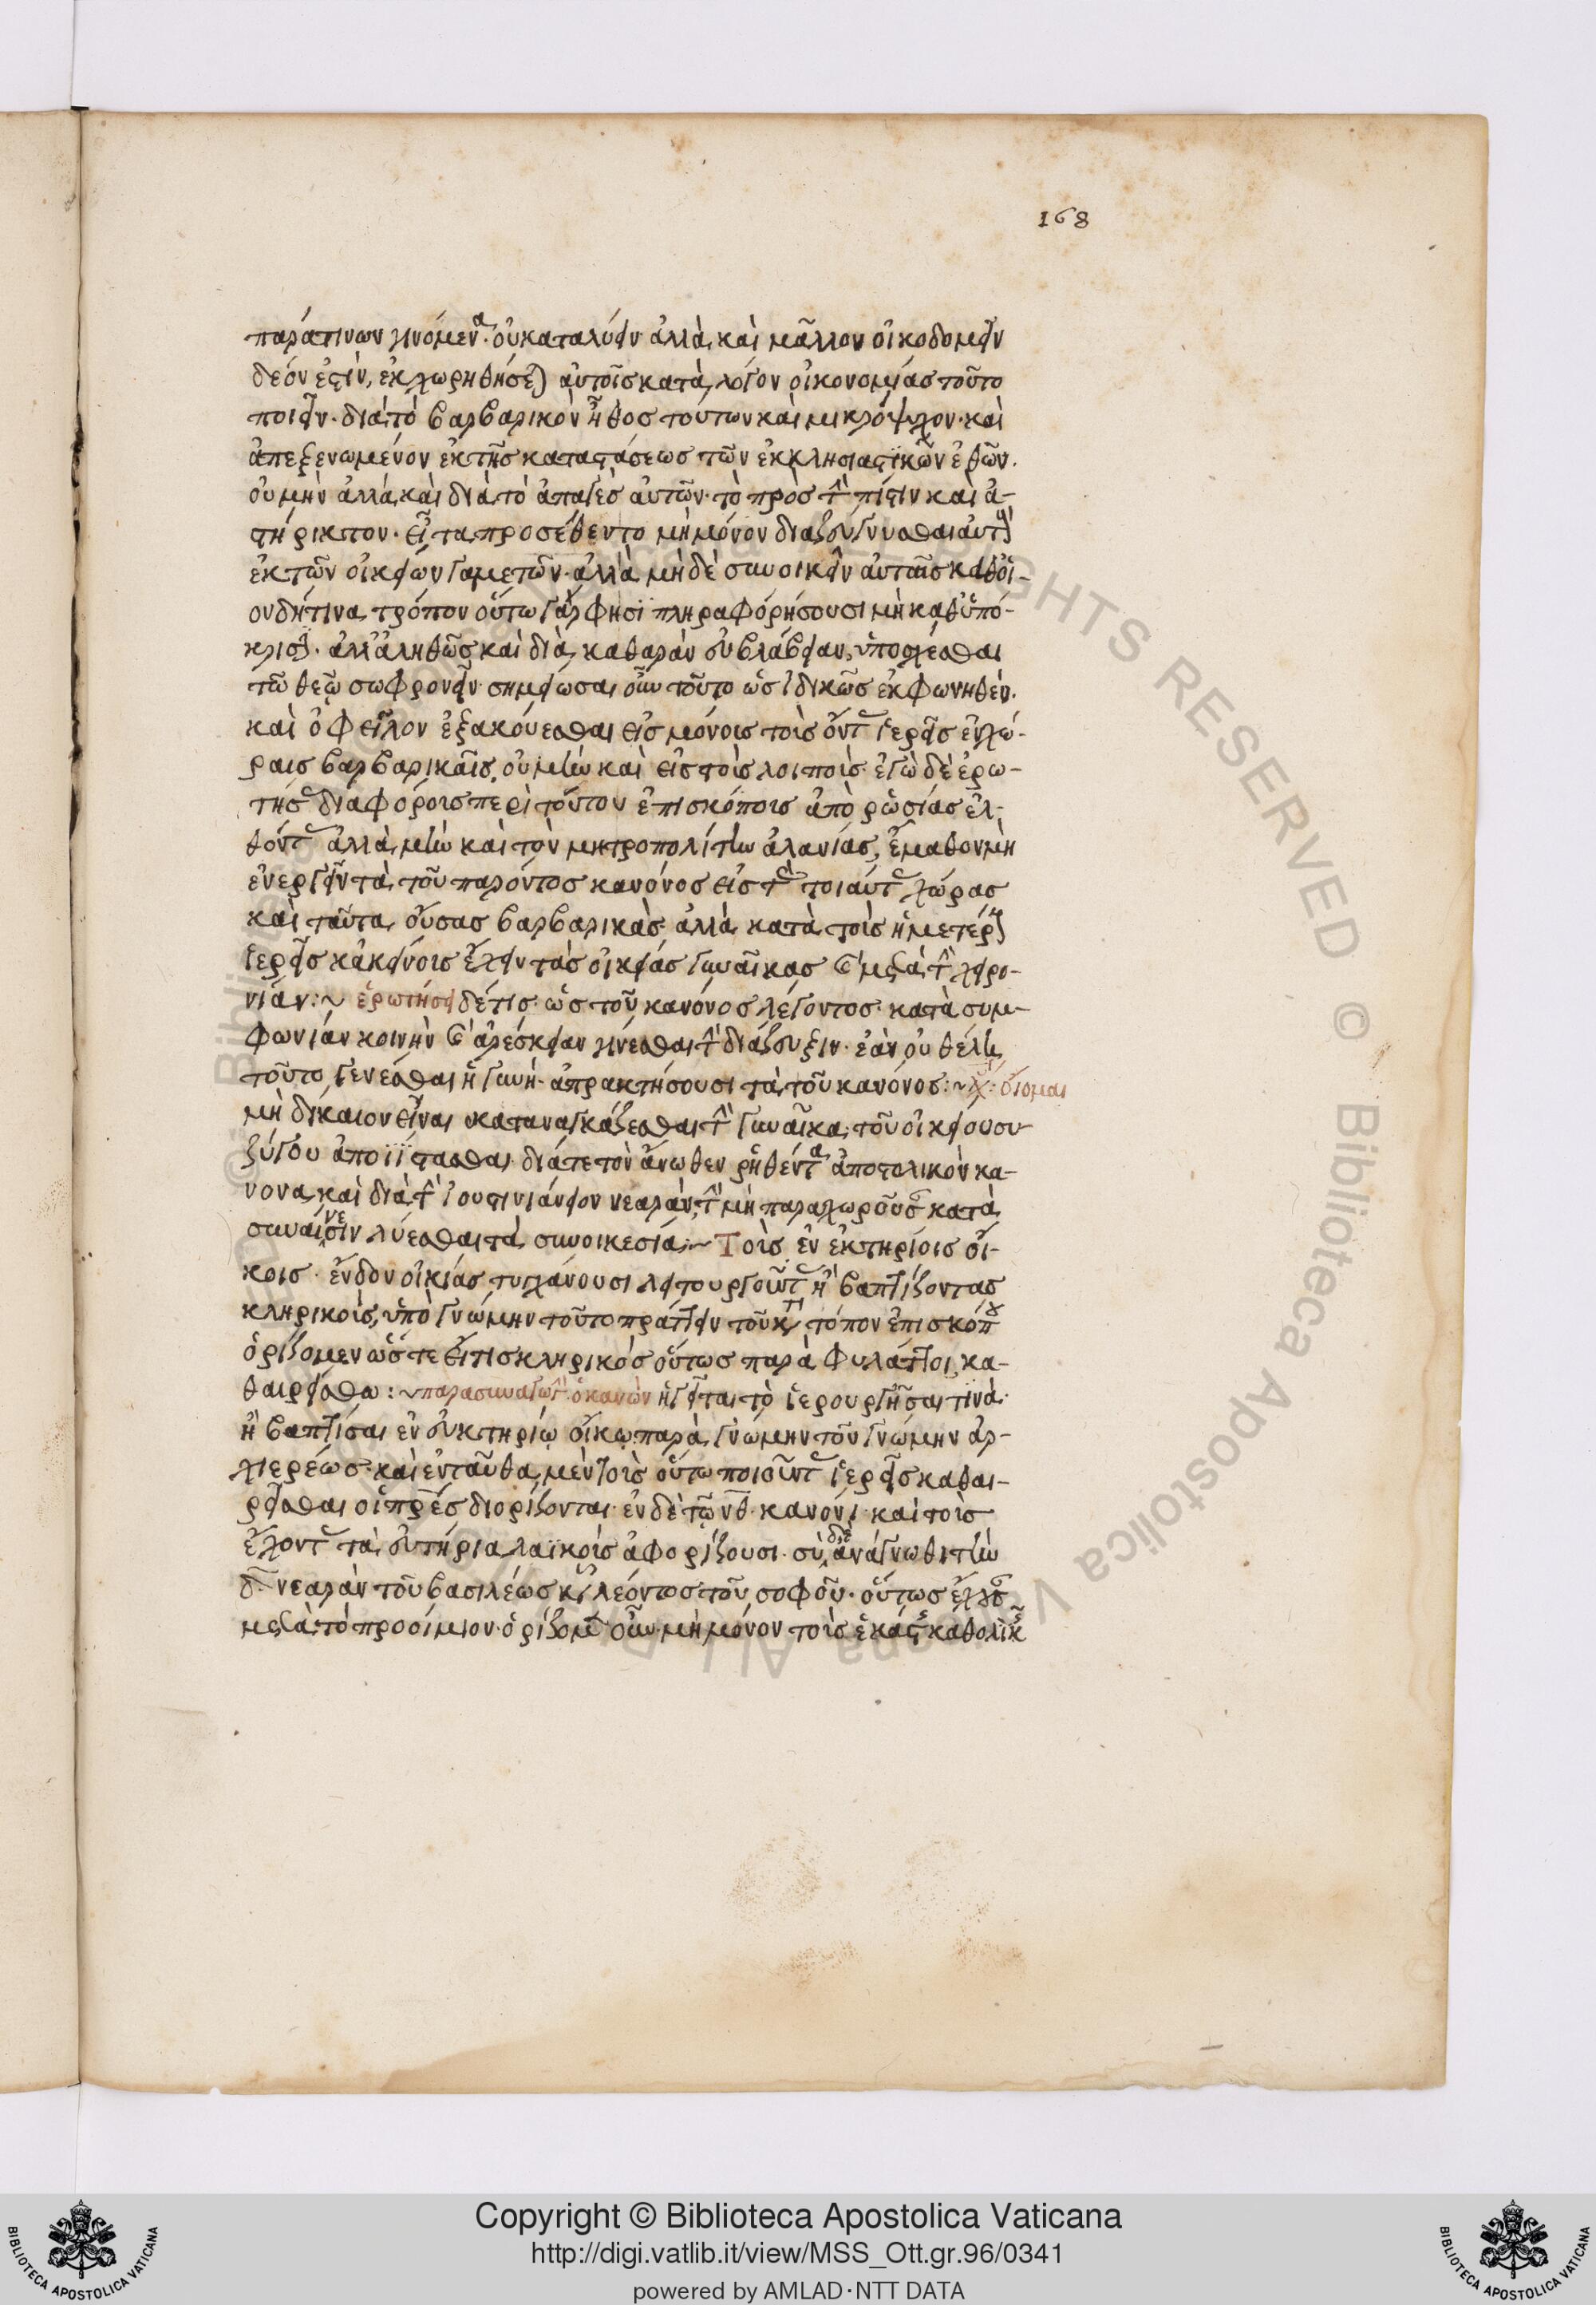 168
παρά τινων γινόμενα· οὐ καταλύειν ἀλλὰ καὶ μᾶλλον οἰκοδομεῖν
δέον ἐστὶν, ἐκχωρηθήσεται αὐτοῖς κατὰ λόγον οἰκονομίας τοῦτο
ποιεῖν· διὰ τὸ βαρβαρικὸν ἦθος τούτων καὶ μικρόψυχον· καὶ
ἀπεξενωμένον ἐκ τῆς καταστάσεως τῶν ἐκκλησιαστικῶν ἐθῶν.
οὐ μὴν ἀλλὰ καὶ διὰ τὸ ἀπαγὲς αὐτῶν· τὸ πρὸς τὴν πίστιν καὶ ἀ-
στήρικτον· εἶτα προσέθεντο μὴ μόνον διαζεύγνυσθαι αὐτοὺς
ἐκ τῶν οἰκείων γαμετῶν· ἀλλὰ μὴ δὲ συνοικεῖν αὐταῖς καθ' οἱ-
ονδήτινα τρόπον οὕτω γάρ φησι πληροφορήσουσι μὴ καθ' ὑπό-
κρισιν· ἀλλ' ἀληθῶς καὶ διὰ καθαρὰν εὐλάβειαν, ὑποσχέσθαι
τῶ θεῷ σωφρονεῖν· σημείωσαι οὖν τοῦτο ὡς ἰδικῶς ἐκφωνηθέν.
καὶ ὀφεῖλον ἐξακούεσθαι εἰς μόνοις τοῖς ὄντας ἱερεῖς ἐν χώ-
ραις βαρβαρικαῖς, οὐ μὴν καὶ εἰς τοῖς λοιποῖς· ἐγὼ δὲ ἐρω-
τήσας διαφόροις περὶ τούτου ἐπισκόποις ἀπὸ ῥωσίας ἐλ-
θόντας ἀλλὰ μὴν καὶ τὸν μητροπολίτην ἀλανίας, ἔμαθον μὴ
ἐνεργεῖν τὰ τοῦ παρόντος κανόνος εἰς τὰς τοιαύτας χώρας
καὶ ταῦτα οὔσας βαρβαρικὰς ἀλλὰ κατὰ τοῖς ἡμετέροις
ἱερεῖς κἀκείνοις ἔχειν τὰς οἰκείας γυναῖκας καὶ μετὰ τὴν χειρο-
νίαν:~ ἐρωτήσει δέ τις· ὡς τοῦ κανόνος λέγοντος· κατὰ συμ-
φωνίαν κοινὴν καὶ ἀρέσκειαν γίνεσθαι τὴν διάζευξιν· ἐὰν οὐ θέλη
τοῦτο γενέσθαι ἡ γυνή· ἀπρακτήσουσι τὰ τοῦ κανόνος:~ οἴομαι
μὴ δίκαιον εἶναι καταναγκάζεσθαι τὴν γυναῖκα τοῦ οἰκείου συ
ζύγου ἀποΐστασθαι διά τε τὸν ἄνωθεν ῥηθέντα ἀποστολικὸν κα-
νόνα καὶ διὰ τὴν ἰουστινιάνειον νεαρὰν, τὴν μὴ παραχωροῦσαν κατὰ
συναίνεσιν λύεσθαι τὰ συνοικεσία:~ Τοῖς ἐν εὐκτηρίοις οἴ-
κοις· ἔνδον οἰκίας τυγχάνουσι λειτουργοῦντας ἢ βαπτίζοντας
κληρικοῖς, ὑπὸ γνώμην τοῦτο πράττειν τοῦ κατὰ τόπον ἐπισκόπου
ὁρίζομεν ὥστε εἴ τις κληρικὸς οὕτως παραφυλάττοι κα-
θαιρείσθω:~ παρασυναγωγὴν ὁ κανὼν ἡγεῖται τὸ ἱερουργῆσαι τινὰ·
ἢ βαπτίσαι ἐν εὐκτηρίῳ οἴκῳ παρὰ γνώμην τοῦ γνώμην ἀρ-
χιερέως· καὶ ἐνταῦθα μὲν τοῖς οὕτω ποιοῦντας ἱερεῖς καθαι-
ρεῖσθαι οἱ πρες διορίζονται· ἐν δὲ τῷ νθ κανόνι καὶ τοῖς
ἔχοντας τὰ εὐκτήρια λαϊκοῖς ἀφορίζουσι· σὺ δὲ ἀνάγνωθι τὴν
δ νεαρὰν τοῦ βασιλέως κυροῦ λέοντος τοῦ σοφοῦ· οὕτως ἔχουσαν
μετὰ τὸ προοίμιον· ὁρίζομεν οὖν μὴ μόνον τοῖς ἑκάστης καθολικῆς
Copyright © Biblioteca Apostolica Vaticana
http://digi.vatlib.it/view/MSS_Ott.gr.96/0341
powered by AMLAD·NTT DATA
BIBLIOTECA APOSTOLICA VATICANA
BIBLIOTECA APOSTOLICA VATICANA